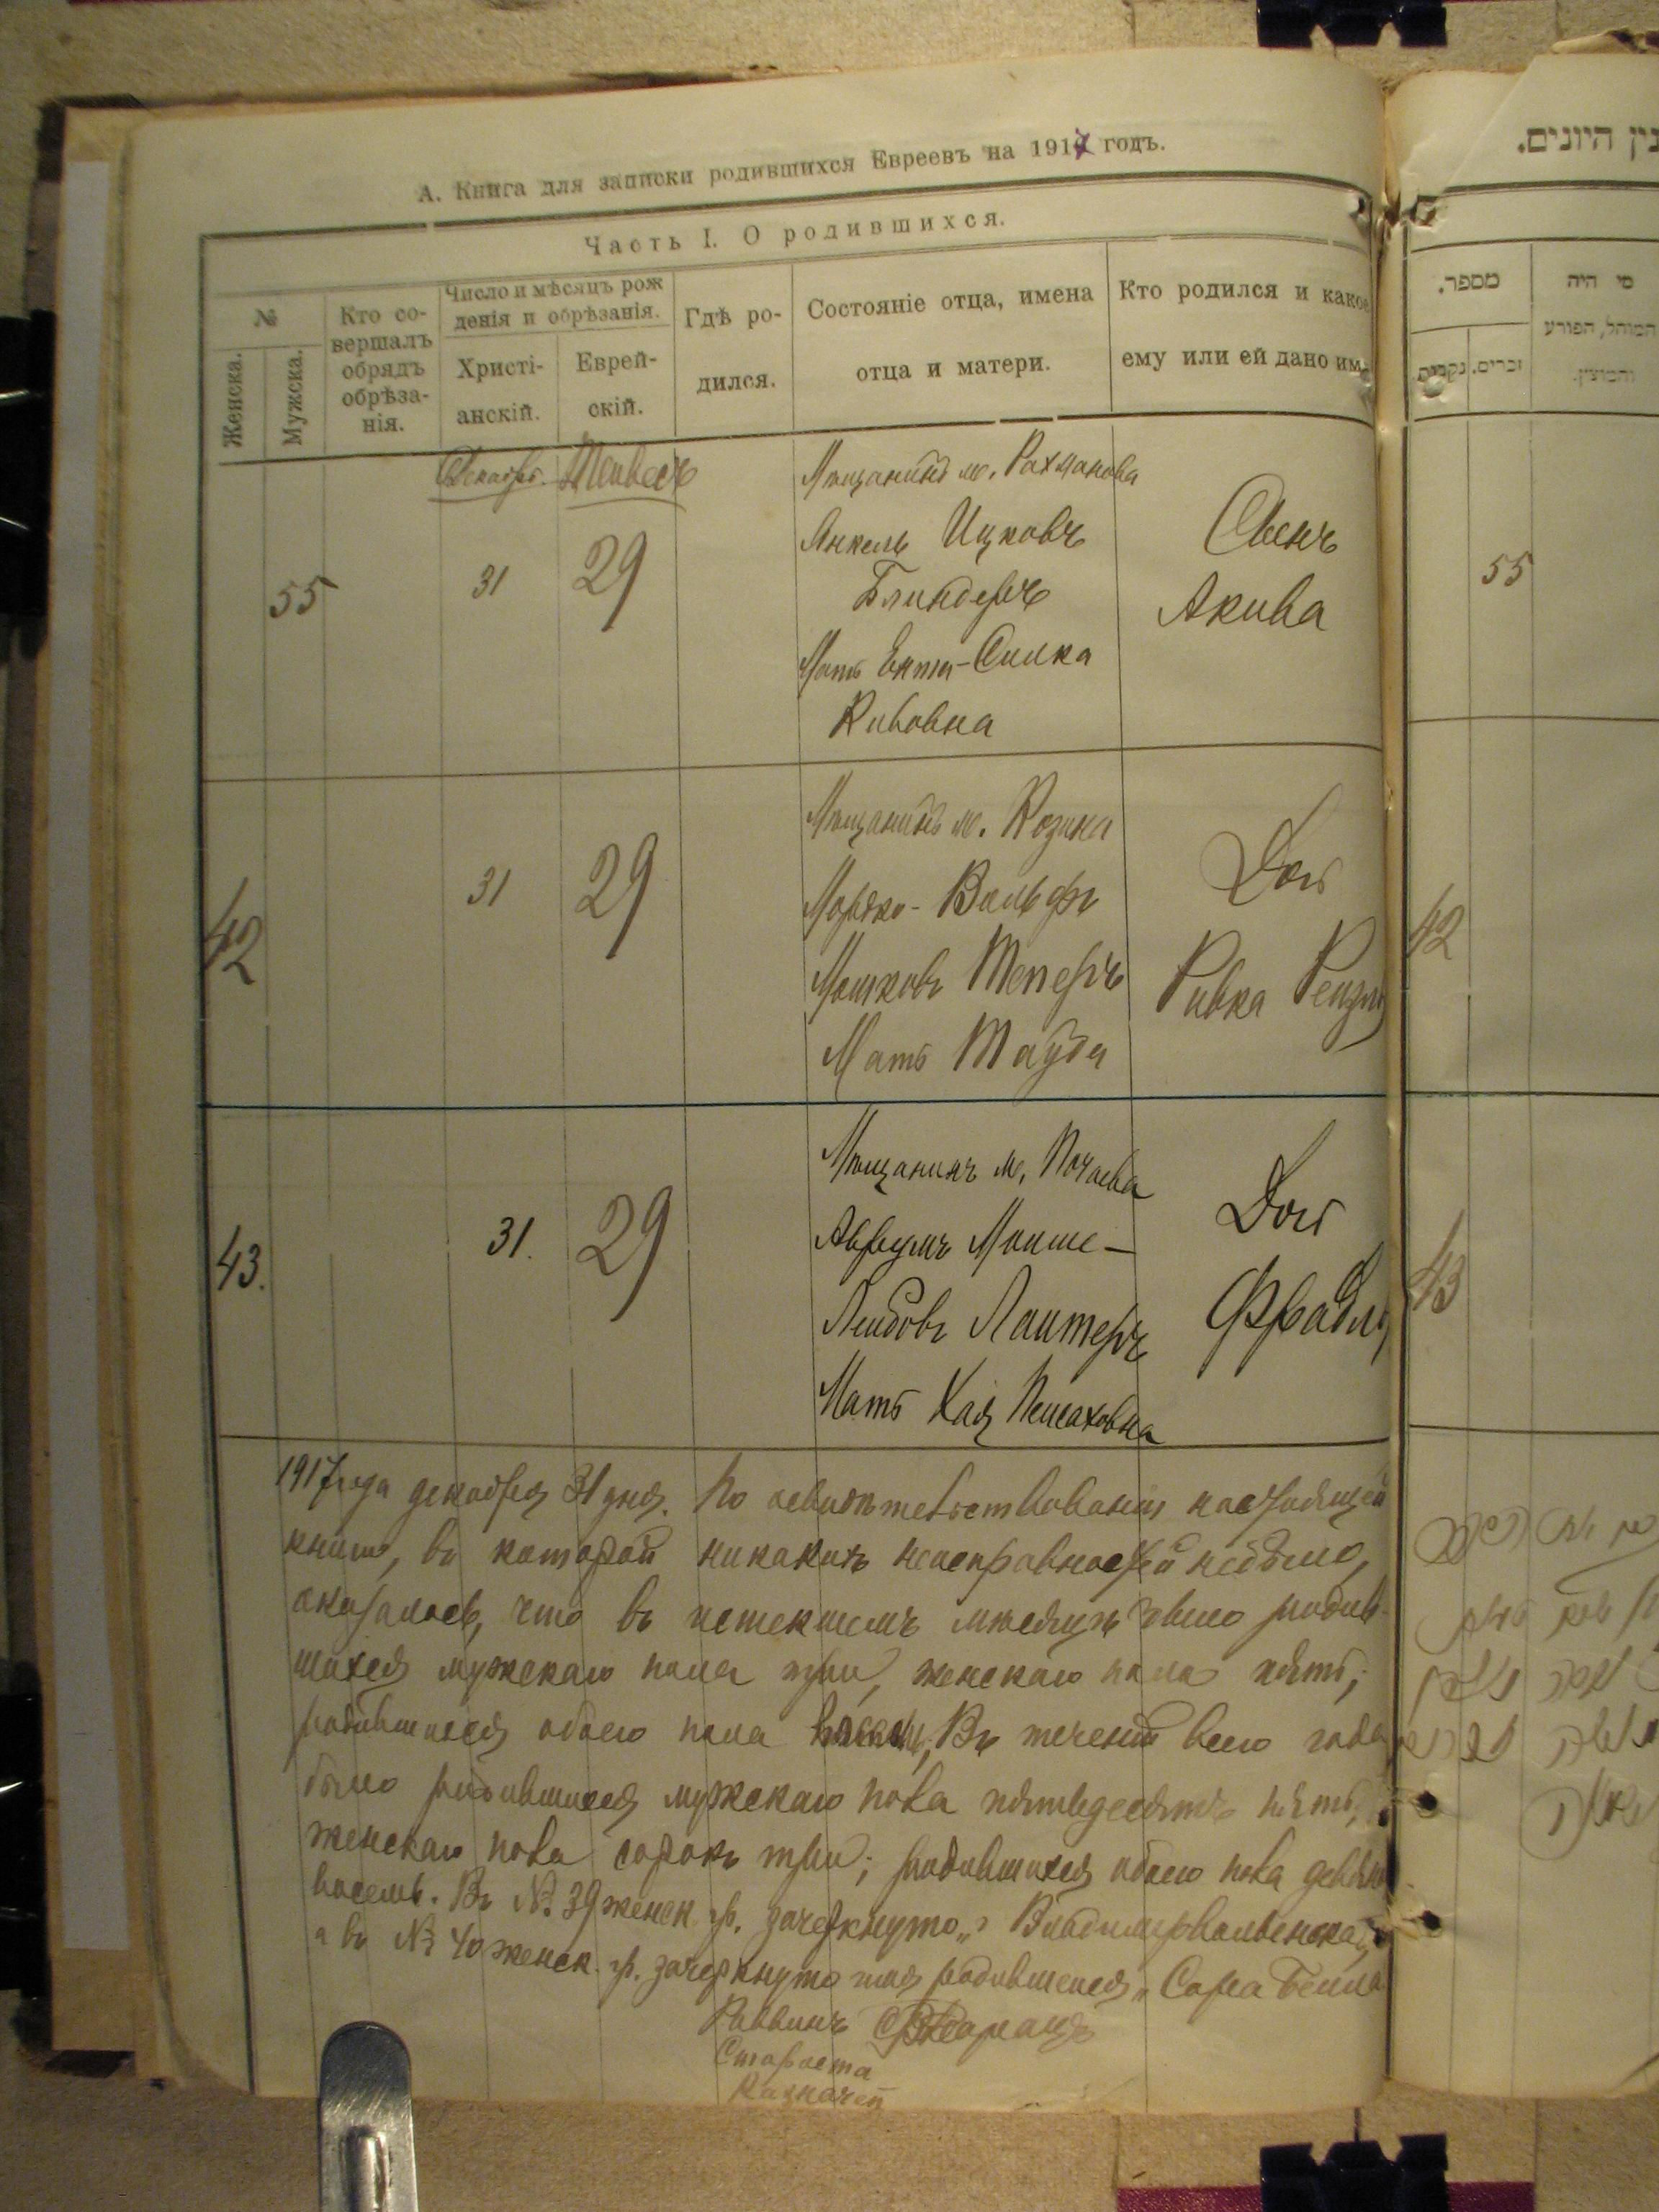 А. Книга для записки родившихся Евреевъ на 1917 годъ.
Часть I. О родившихся.
№
Женска.
Мужска.
Кто со-
вершалъ
обрядъ
обрѣза-
нія.
Число и мѣсяцъ рож
денія и обрѣзанія.
Христі-
анскій.
Еврей-
скій.
Гдѣ ро-
дился.
Состояніе отца, имена
отца и матери.
Кто родился и какое
ему или ей дано им.
Декабрь. Тейвесъ
55
31
29
Мѣщанинъ м. Рахманова
Янкель Ицковъ
Блиндеръ
Мать Ента-Симка
Кивовна
Сынъ
Акива
42
31
29
Мѣщанинъ м. Козина
Мордко-Вольфъ
Мошковъ Теперъ
Мать Тауба
Доч
Ривка Рейзля
43.
31.
29
Мѣщанинъ м. Почаева
Аврумъ Мойше-
Лейбовъ Лантеръ
Мать Хая Пейсаховна
Доч
Фрадля
1917 года декабря 31 дня. По освидѣтельствованіи настоящей
книги, въ которой никакихъ неисправностей не было,
оказалось, что въ истекшемъ мѣсяцѣ было родив-
шихся мужскаго пола три, женскаго пола пять;
родившихся обоего пола восемь; Въ теченіи всего года
было родившихся мужскаго пола пятьдесятъ пять,
женскаго пола сорокъ три; родившихся обоего пола девяно
восемь. Въ № 39 женск. гр. зачеркнуто „г Владимирволынская
а въ № 40 женск. гр. зачеркнуто имя родившейся „Сара Бейла
Раввинъ
Староста
Казначей
נין היונים.
מספר.
נקבות
זכרים.
מי היה
המוהל, הפורע
והמוצץ.
55
42
43